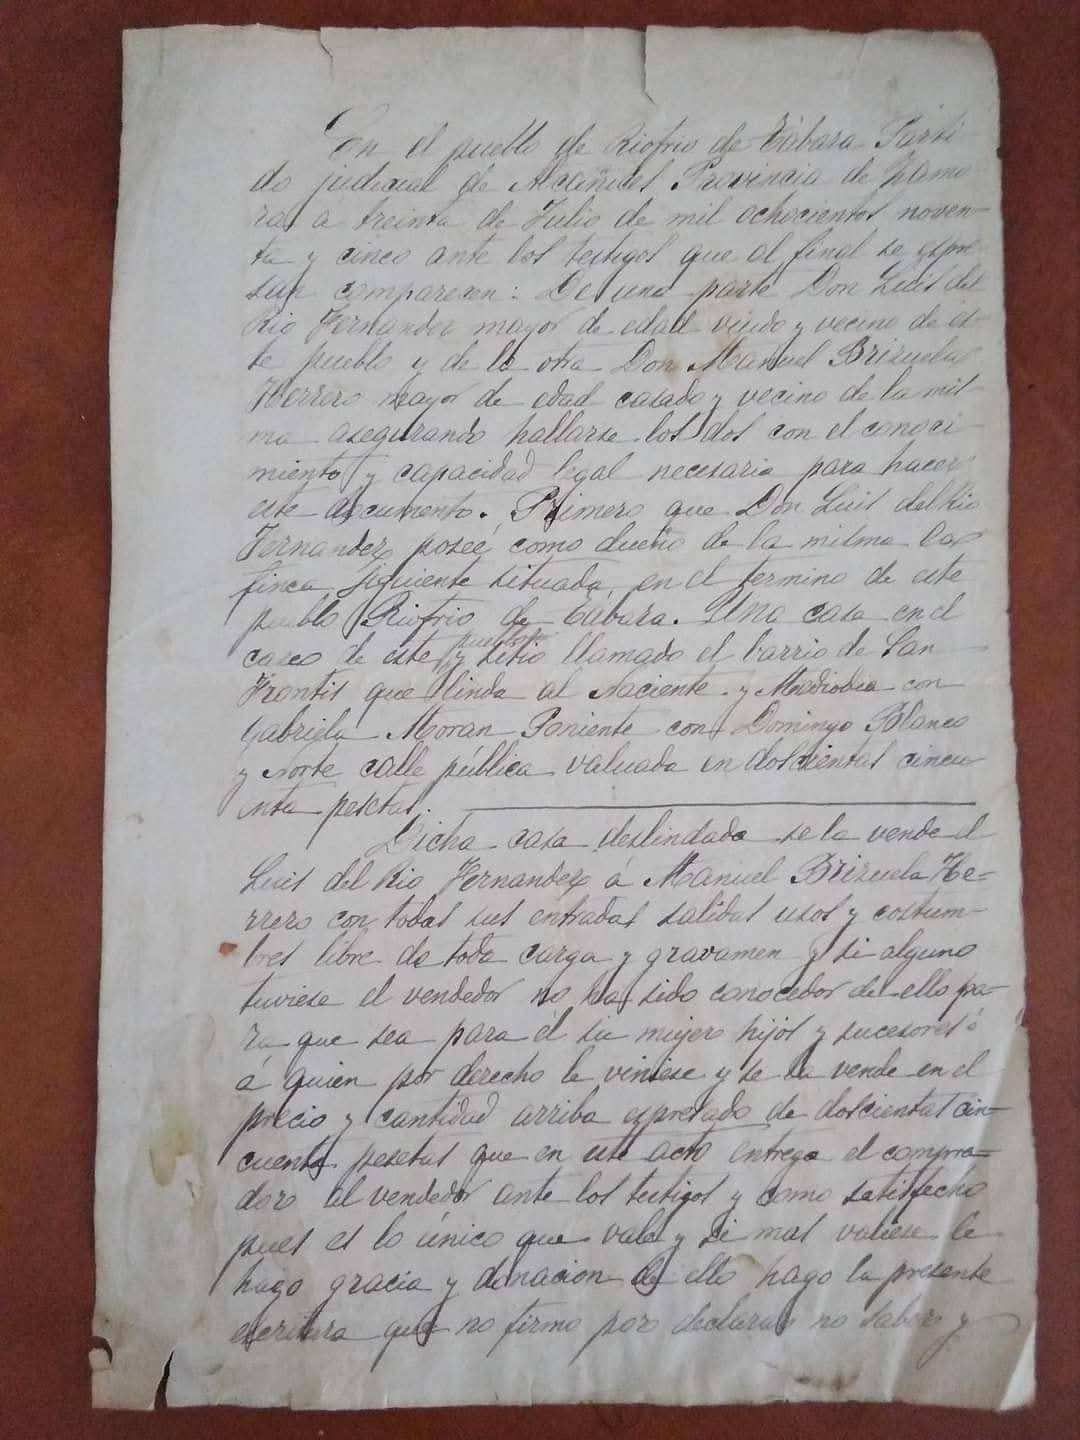 En el pueblo de Riofrio de Tábara Parti
do judicial de Alcañices Provincia de Zamo
ra, a treinta de Julio de mil ochocientos noven-
ta y cinco ante los testigos que al final se espre
san comparecen: De una parte Don Luis del
Rio Fernandez mayor de edad viudo y vecino de es-
te pueblo y de la otra Don Manuel Brizuela
Herrero mayor de edad casado y vecino de la mis-
ma asegurando hallarse los dos con el conoci-
miento y capacidad legal necesaria para hacer
este documento. Primero que Don Luis del Rio
Fernandez poseé como dueño de la misma la
finca siguiente situada en el termino de este
pueblo Riofrio de Tábara. Una casa en el
casco de este pueblo y sitio llamado el barrio de San
Frontis que linda al Naciente y Mediodia con
Gabriela Moran Poniente con Domingo Blanco
y Norte calle pública valuada en doscientas cincue
enta pesetas.
Dicha casa deslindada se la vende el
Luis del Rio Fernandez á Manuel Brizuela He-
rrero con todas sus entradas salidas usos y costum-
bres libre de toda carga y gravamen y si alguno
tuviese el vendedor no ha sido conocedor de ello pa-
ra que sea para él su mujer hijos y sucesores ó
á quien por derecho le viniese y se la vende en el
precio y cantidad arriba espresado de doscientas cin-
cuenta pesetas que en este acto entrega el compra-
dor al vendedor ante los testigos y como satisfecho
pues es lo único que vale y si mas valiese le
hago gracia y donacion de ello hago la presente
escritura que no firmo por declarar no saber y